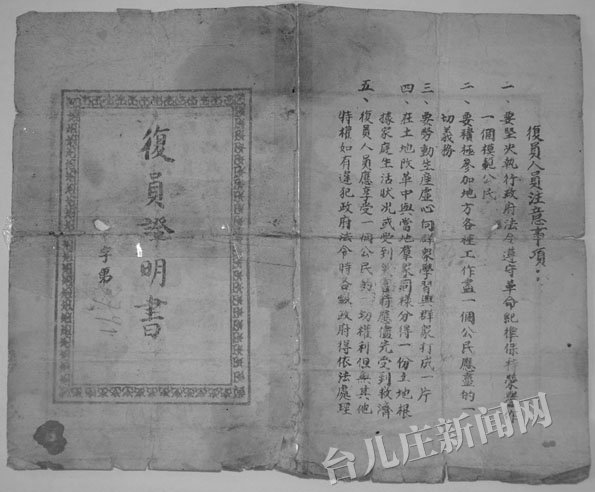 復員人員注意事項：
一、要堅決執行政府法令遵守革命紀律保持榮譽作
一個模範公民
二、要積極參加地方各種工作盡一個公民應盡的一
切義務
三、要勞動生產虛心向群衆學習與群衆打成一片
四、在土地改革中與當地羣衆同樣分得一份土地根
據家庭生活狀況或受到災害時應儘先受到救濟
五、復員人員應享受一個公民的一切權利但無其他
特權如有違犯政府法令時各級政府得依法處理
復員證明書
字第
台儿庄新闻网